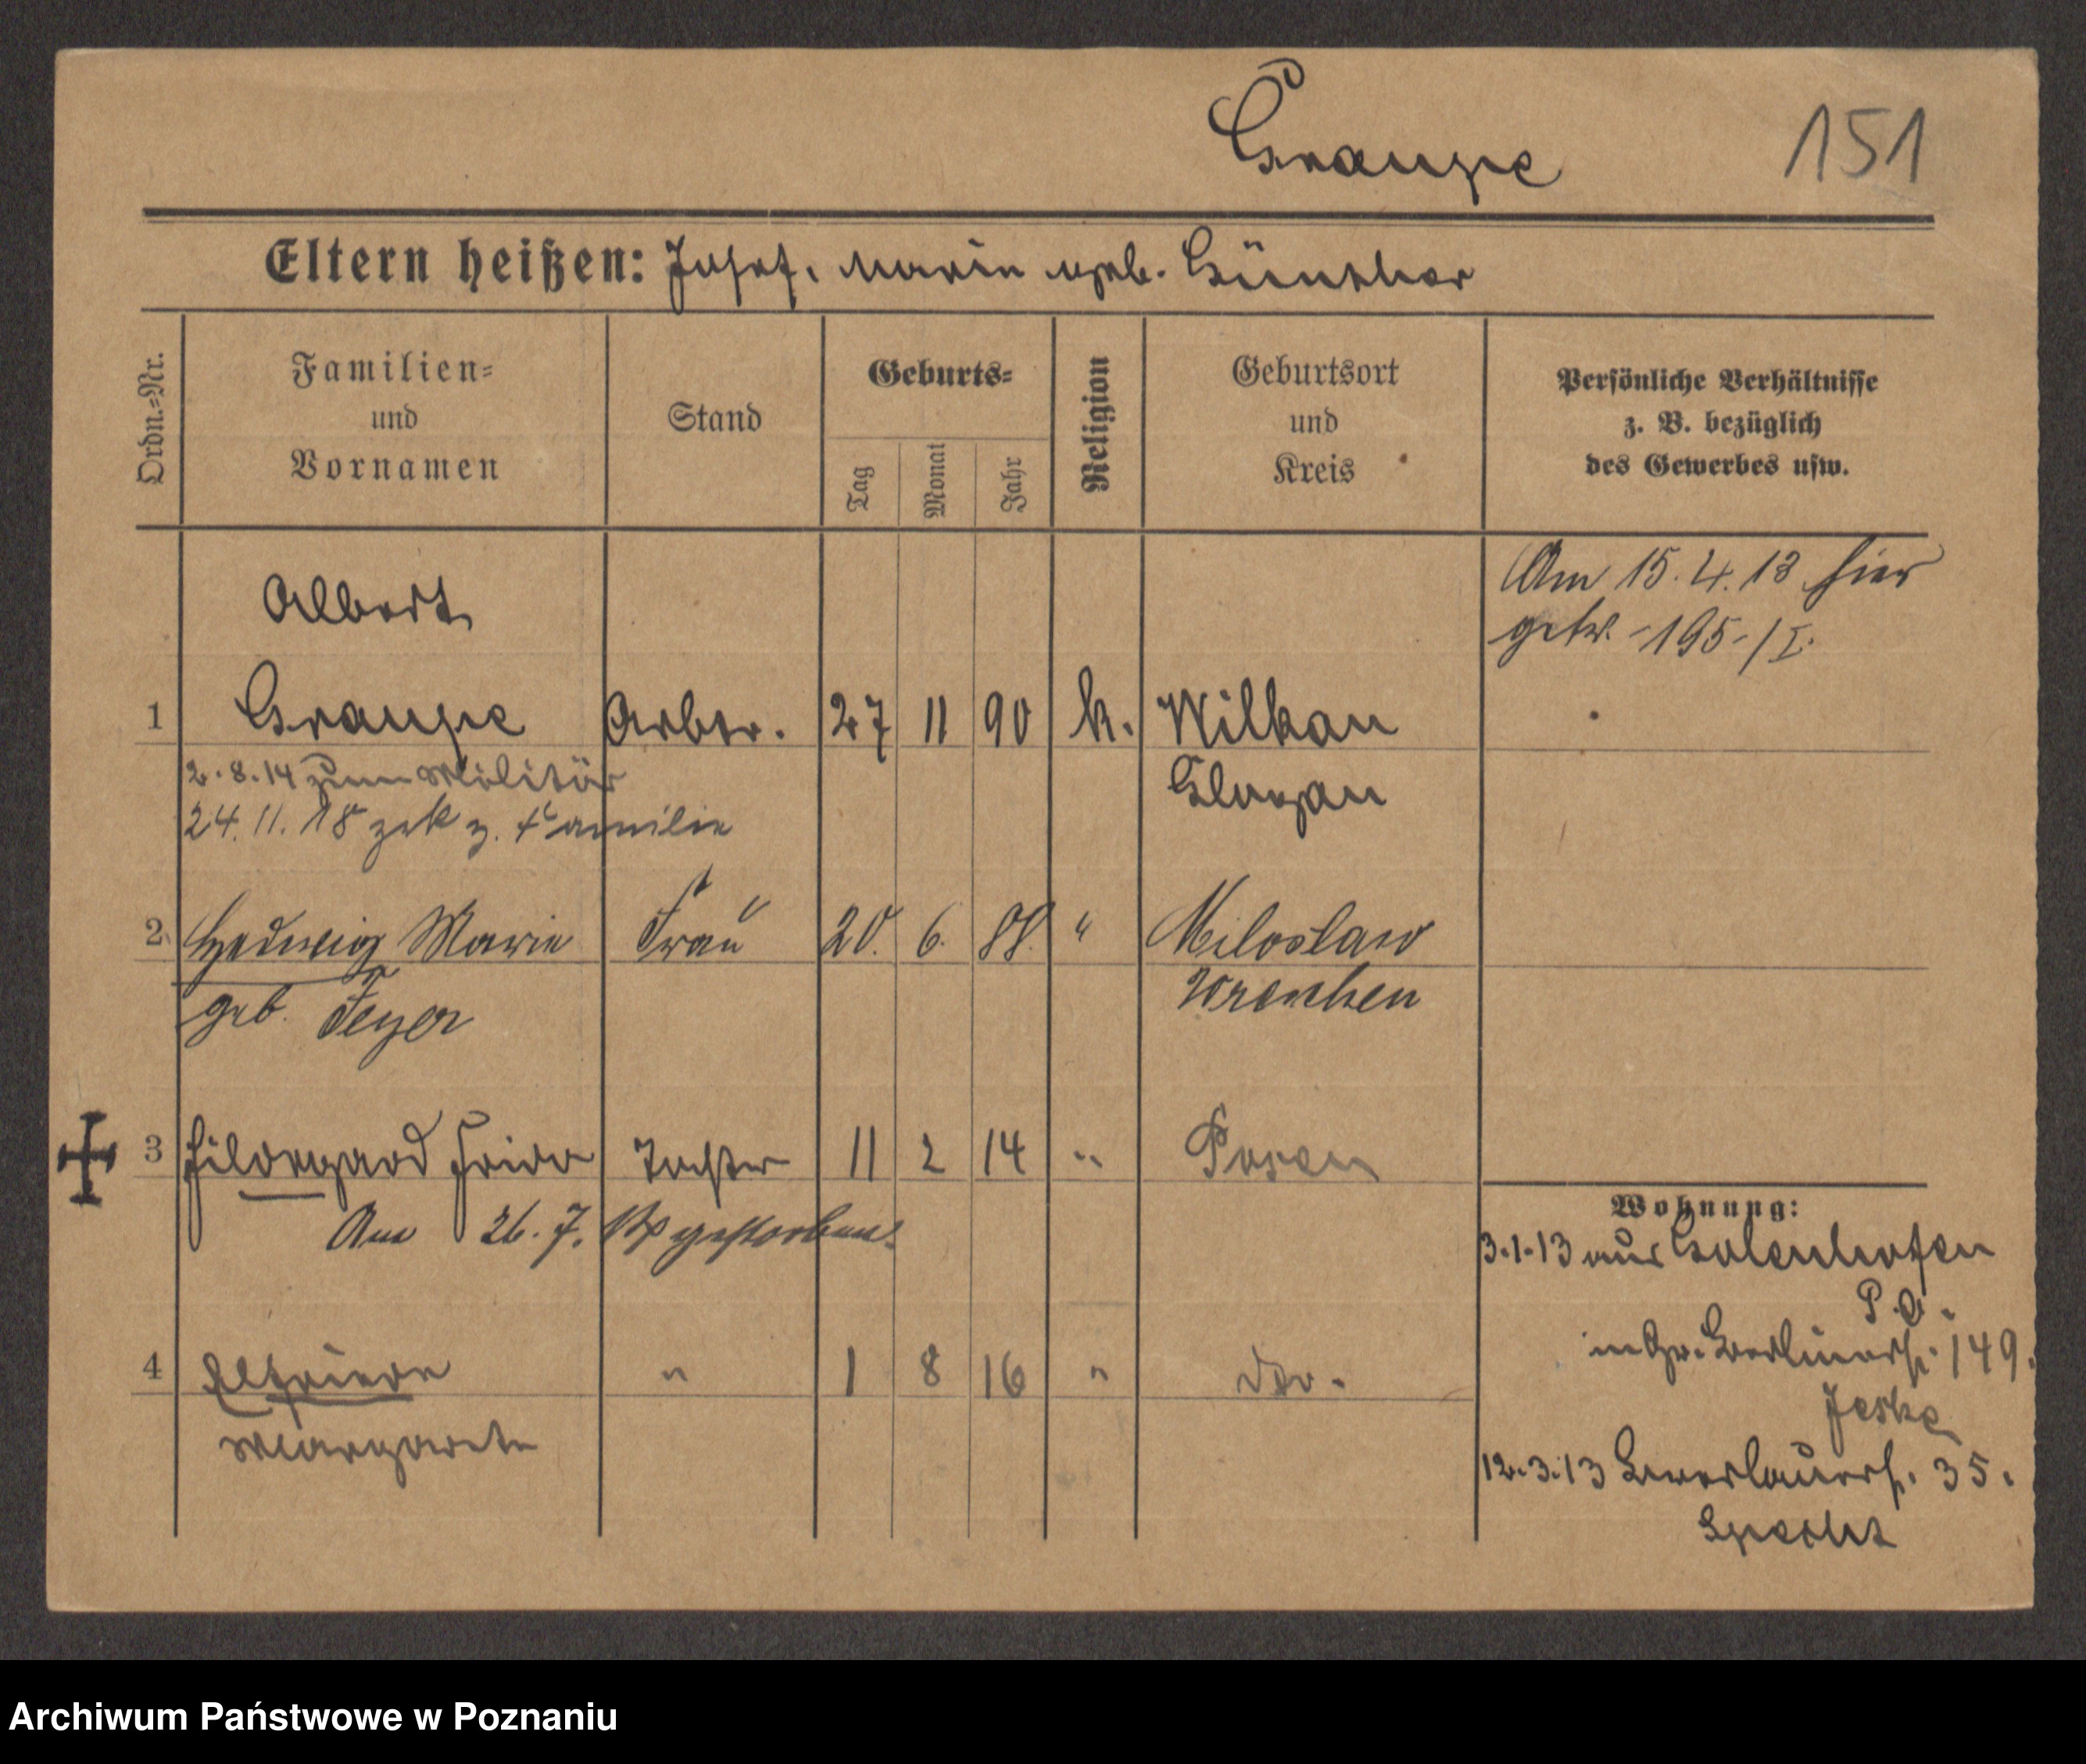 Graupe
151
Eltern heißen: Josef, Marie geb. Günther
Ordn.-Nr.
Familien-
und
Vornamen
Stand
Geburts-
Tag
Monat
Jahr
Religion
Geburtsort
und
Kreis
Persönliche Verhältnisse
z. B. bezüglich
des Gewerbes usw.
Am 15. 4. 13 hier
getr. -195-/I.
Albert
1 Graupe Arbtr. 27 11 90 k. Wilkau
Glogau
2.8.14 zum Militär
24.11.18 zrk z. Familie
2 Hedwig Marie Frau 20. 6. 88. " Miloslaw
geb. Feyer Wreschen
3 Hildegard Frida Tochter 11 2 14 " Posen
Am 26. 7. gestorben.
4 Elfriede " 1 8 16 " do.
Margarete
Wohnung:
3.1.13 aus Golenhofen
P.O.
in Gr. Berlinerst. 149.
Jeske
12.3.13 Breslauerst. 35.
Specht
Archiwum Państwowe w Poznaniu